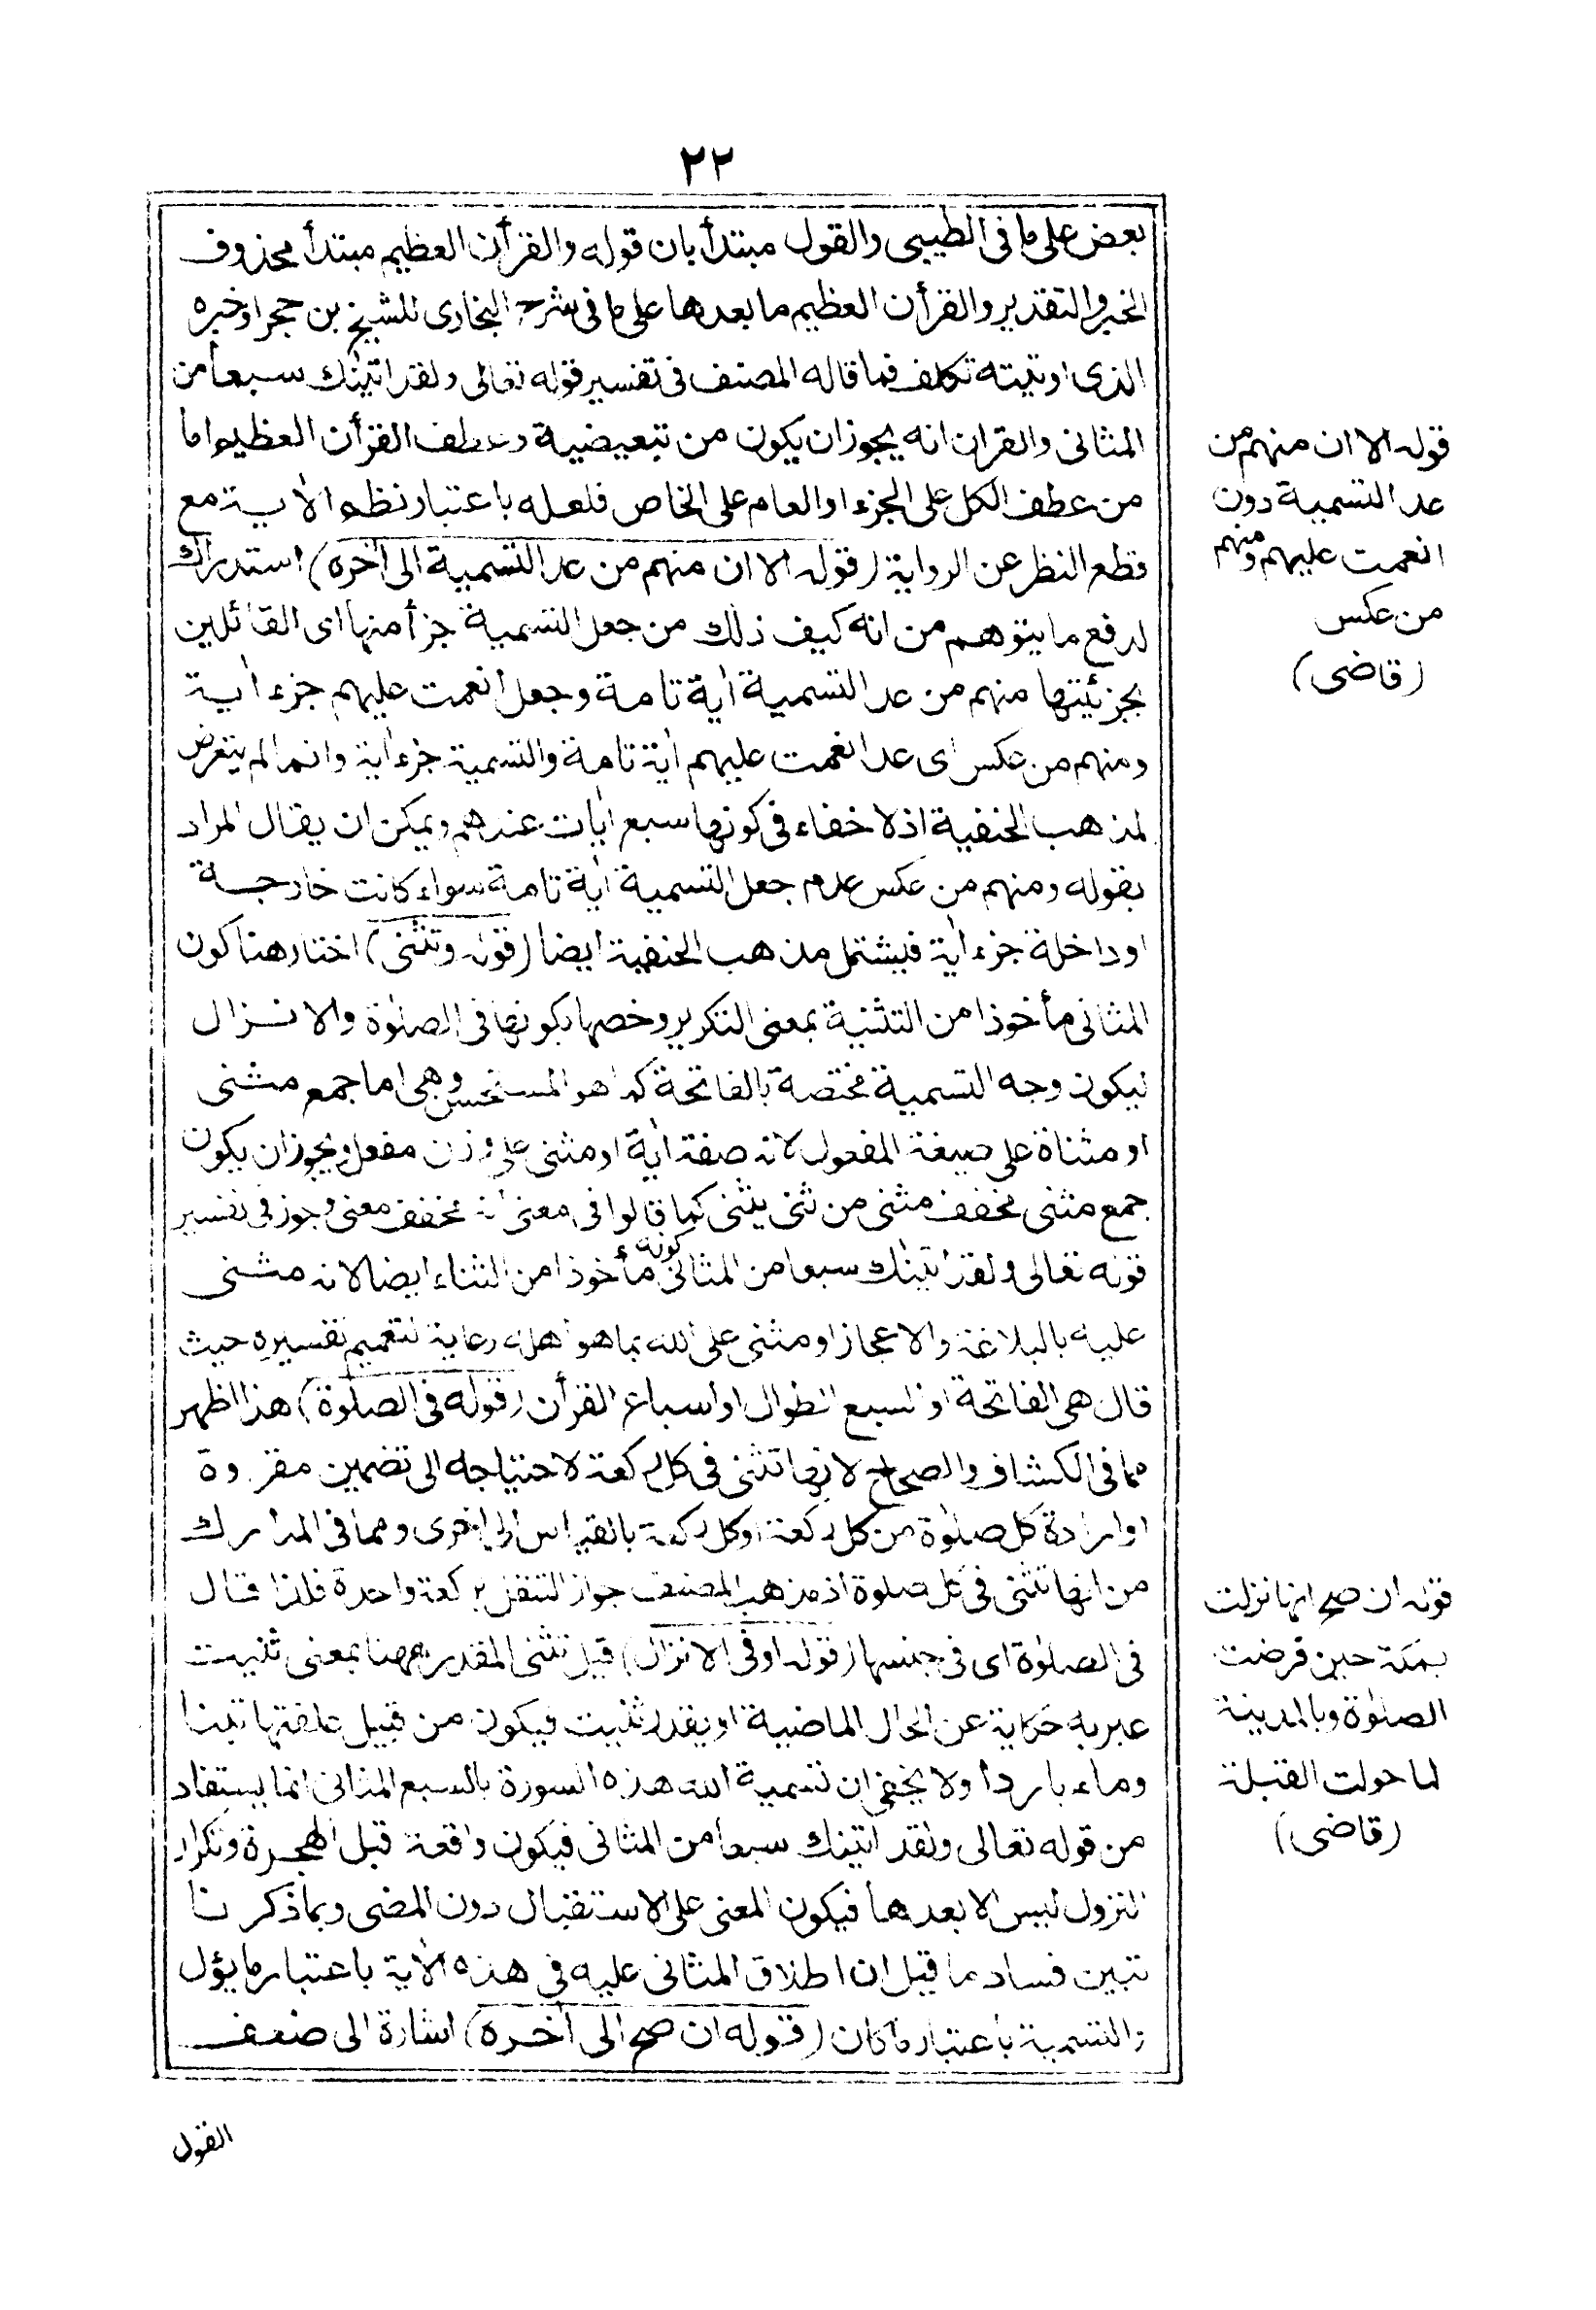 ٢٢
بعض على ما فى الطيبى والقول مبتدأ بان قوله والقرأن العظيم مبتدأ محذوف
الخبر والتقدير والقرأن العظيم ما بعدها على ما فى شرح البخارى للشيخ بن حجر او خبره
الذى اوتيته تكلف فما قاله المصنف فى تفسير قوله تعالى ولقد اتينٰك سبعا من
المثانى والقران انه يجوز ان يكون من تبعيضية وعطف القرأن العظيم اما
من عطف الكل على الجزء او العام على الخاص فلعله باعتبار نظم الأية مع
قطع النظر عن الرواية (قوله الا ان منهم من عد التسمية الى أخره) استدراك
لدفع ما يتوهم من انه كيف ذلك من جعل التسمية جزأ منها اى القائلين
بجزئيتها منهم من عد التسمية أية تامة وجعل انعمت عليهم جزء أية
ومنهم من عكس اى عد انعمت عليهم أية تامة والتسمية جزء أية وانما لم يتعرض
لمذهب الحنفية اذ لا خفاء فى كونها سبع أيات عندهم ويمكن ان يقال المراد
بقوله ومنهم من عكس عدم جعل التسمية أية تامة سواء كانت خارجة
او داخلة جزء أية فيشتمل مذهب الحنفية ايضا (قوله وتثنى) اختار هنا كون
المثانى مأخوذا من التثنية بمعنى التكرير وخصها بكونها فى الصلٰوة والانزال
ليكون وجه التسمية مختصة بالفاتحة كما هو المستحسن وهى اما جمع مثنى
او مثناة على صيغة المفعول لانه صفة أية او مثنى على وزن مفعل ويجوز ان يكون
جمع مثنى مخفف مثنى من ثنى يثنى كما قالوا فى معنى انه مخفف معنى وجوز فى تفسير
قوله تعالى ولقد اتينٰك سبعا من المثانى كونه مأخوذا من الثناء ايضا لانه مثنى
عليه بالبلاغة والاعجاز او مثنى على الله بما هو اهله رعاية لتعميم تفسيره حيث
قال هى الفاتحة او السبع الطوال او اسباع القرأن (قوله فى الصلٰوة) هذا اظهر
مما فى الكشاف والصحاح لانها تثنى فى كل ركعة لاحتياجه الى تضمين مقروة
او ارادة كل صلٰوة من كل ركعة او كل ركعة بالقياس الى اخرى ومما فى المدارك
من انها تثنى فى كل صلوة اذ مذهب المصنف جواز التنفل بركعة واحدة فلذا قال
فى الصلٰوة اى فى جنسها (قوله او فى الانزال) قيل تثنى المقدر ههنا بمعنى ثنيت
عبر به حكاية عن الحال الماضية او يقدر ثنيت فيكون من قبيل علفتها تبنا
وماء باردا ولا يخفى ان تسمية الله هذه السورة بالسبع المثانى انما يستفاد
من قوله تعالى ولقد اتينٰك سبعا من المثانى فيكون واقعة قبل الهجرة وتكرار
النزول ليس الا بعدها فيكون المعنى على الاستقبال دون المضى وبما ذكرنا
تبين فساد ما قيل ان اطلاق المثانى عليه فى هذه الأية باعتبار ما يؤل
والتسمية باعتبار ما كان (قوله ان صح الى أخره) اشارة الى ضعف
القول
قوله الا ان منهم من
عد التسمية دون
انعمت عليهم ومنهم
من عكس
(قاضى)
قوله ان صح انها نزلت
بمكة حين فرضت
الصلٰوة وبالمدينة
لما حولت القبلة
(قاضى)